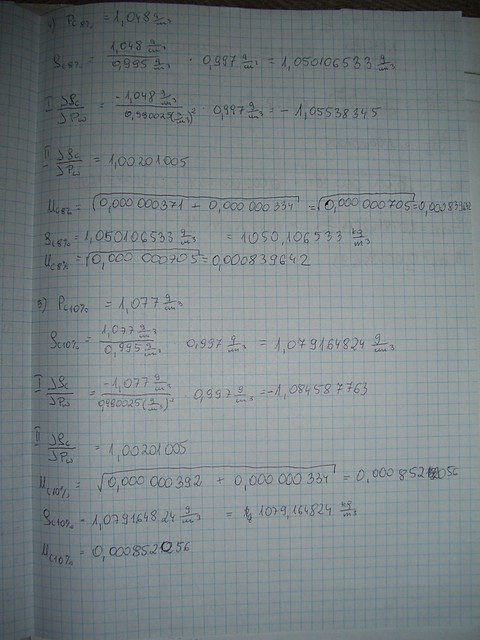 2) ρc8% = 1,048 g/cm³
ρc8% = 1,048 g/cm³ / 0,995 g/cm³ · 0,997 g/cm³ = 1,050106533 g/cm³
I ∂ρc/∂ρw = -1,048 g/cm³ / 0,990025 (g/cm³)² 0,997 g/cm³ = -1,05538345
II ∂ρc/∂ρw = 1,00201005
uc8% = √0,000 000 371 + 0,000 000 334 = √0,000 000 705 =
ρc8% = 1,050106533 g/cm³ = 1050,106533 kg/m³
uc8% = √0,000 000705 = 0,000839642
3) ρc10% = 1,077 g/cm³
ρc10% = 1,077 g/cm³ / 0,995 g/cm³ 0,997 g/cm³ = 1,079164824 g/cm³
I ∂ρc/∂ρw = -1,077 g/cm³ / 0,990025 (g/cm³)² 0,997 g/cm³ = -1,084587763
II ∂ρc/∂ρw = 1,00201005
uc10% = √0,000 000 392 + 0,000 000 334 = 0,000 852056
ρc10% = 1,079164824 g/cm³ = 1079,164824 kg/m³
uc10% = 0,000852056